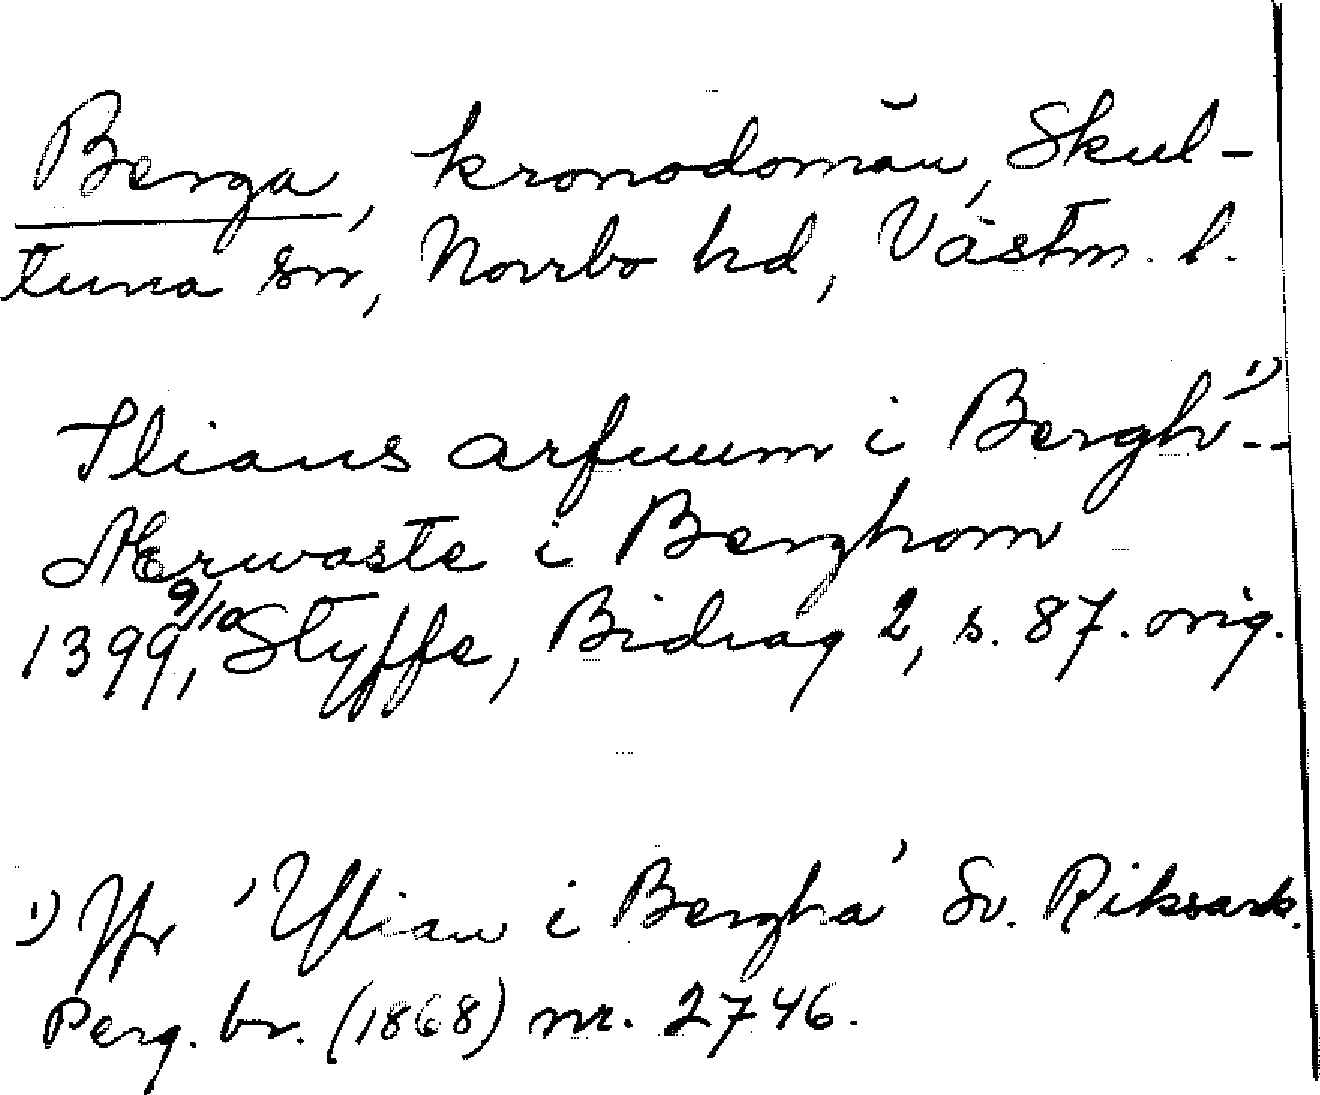 Berga, kronodomän, Skul-
tuna sn, Norrbo hd, Västm. l.
Ilians arfuum i Bergh¹⁾--
Merwaste i Berghom
1399 9/10, Styffe, Bidrag 2, s. 87. orig.
¹⁾ Jfr 'Yllian i Bergha' Sv. Riksark.
Perg. br. (1868) nr. 2746.